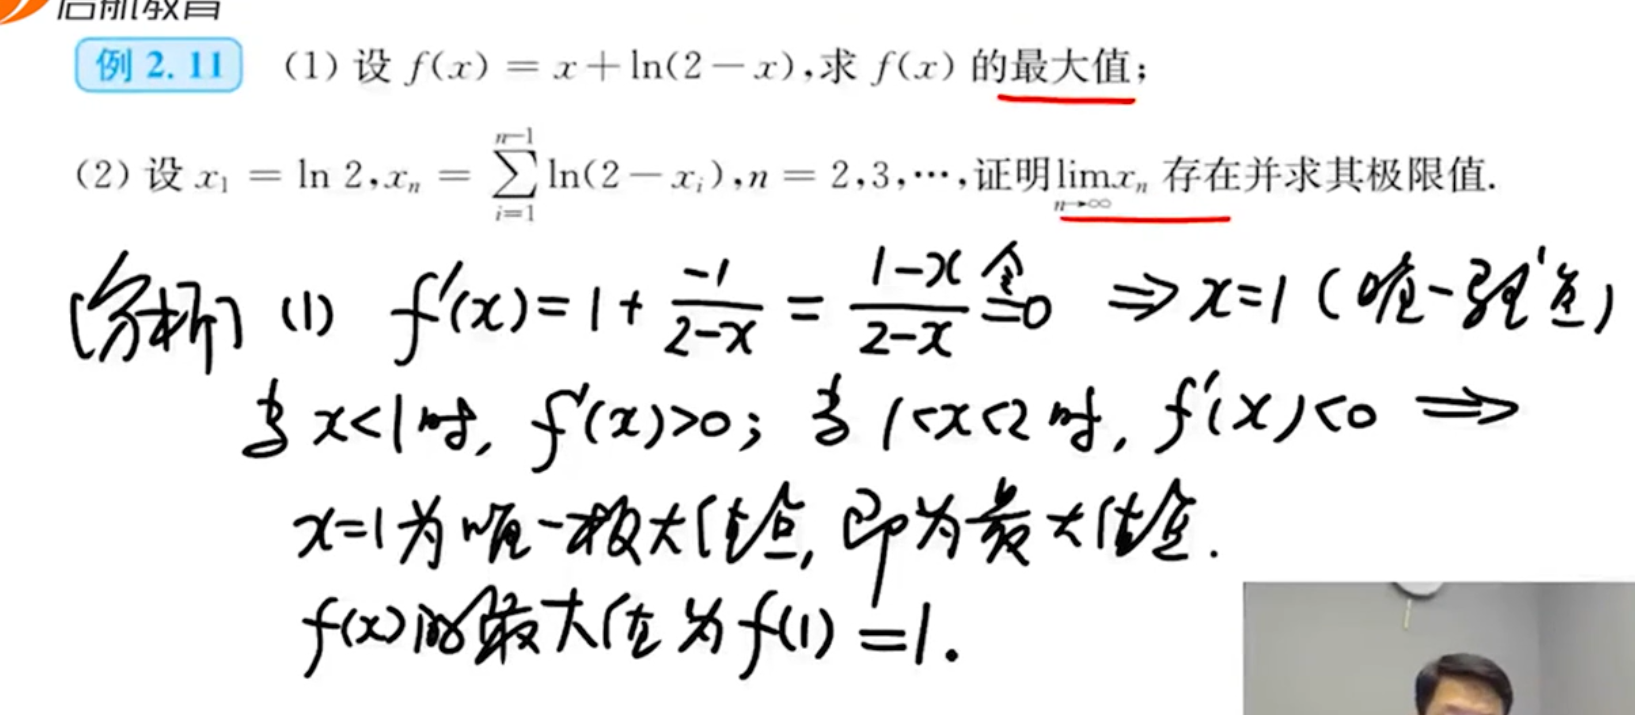 启航教育
例 2.11 (1) 设 f(x) = x + ln(2 − x), 求 f(x) 的最大值;
(2) 设 x₁ = ln 2, xₙ = ∑_{i=1}^{n−1} ln(2 − xᵢ), n = 2,3,⋯, 证明 lim_{n→∞} xₙ 存在并求其极限值.
[分析] (1) f′(x) = 1 + \frac{-1}{2-x} = \frac{1-x}{2-x} 令= 0 ⇒ x=1 (唯一驻点)
当 x<1 时, f′(x)>0; 当 1<x<2 时, f′(x)<0 ⇒
x=1 为唯一极大值点, 即为最大值点.
f(x) 的最大值为 f(1) = 1.